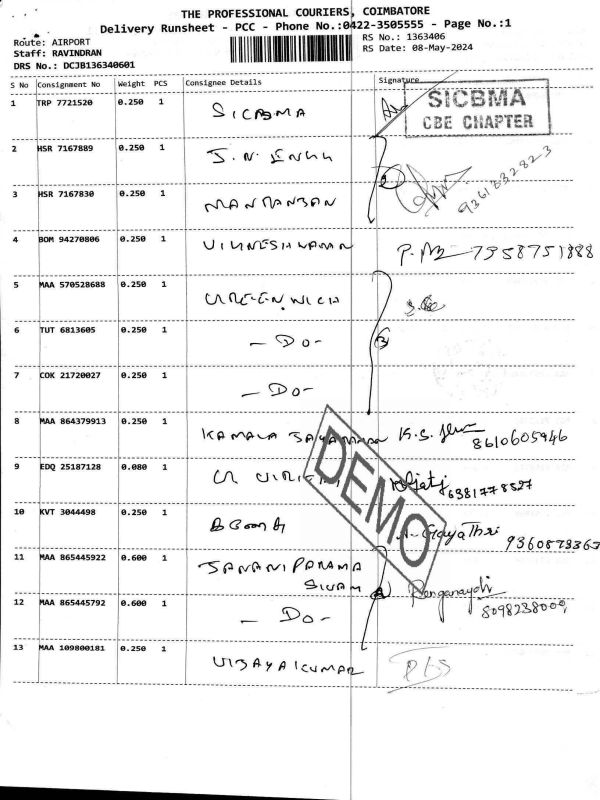 THE PROFESSIONAL COURIERS, COIMBATORE
Delivery Runsheet - PCC - Phone No.:0422-3505555 - Page No.:1
Route: AIRPORT
Staff: RAVINDRAN
DRS No.: DCJB136340601
RS No.: 1363406
RS Date: 08-May-2024
S No Consignment No Weight PCS Consignee Details Signature
1 TRP 7721520 0.250 1 SICBMA
SICBMA
CBE CHAPTER
2 HSR 7167889 0.250 1
3 HSR 7167830 0.250 1
9361832823
4 BOM 94270806 0.250 1 VIKNESHWARAN 7958751888
5 MAA 570528688 0.250 1 GREENWICH
6 TUT 6813605 0.250 1 - Do -
7 COK 21720027 0.250 1 - Do -
8 MAA 864379913 0.250 1 KAMALA K.S. 8610605946
9 EDQ 25187128 0.080 1 6381778527
10 KVT 3044498 0.250 1 Gayathri
11 MAA 865445922 0.600 1 JANANI PARAMA
SIVAM
12 MAA 865445792 0.600 1 - Do - Renganayaki
8098238000
13 MAA 109800181 0.250 1 VIJAYAKUMAR
DEMO